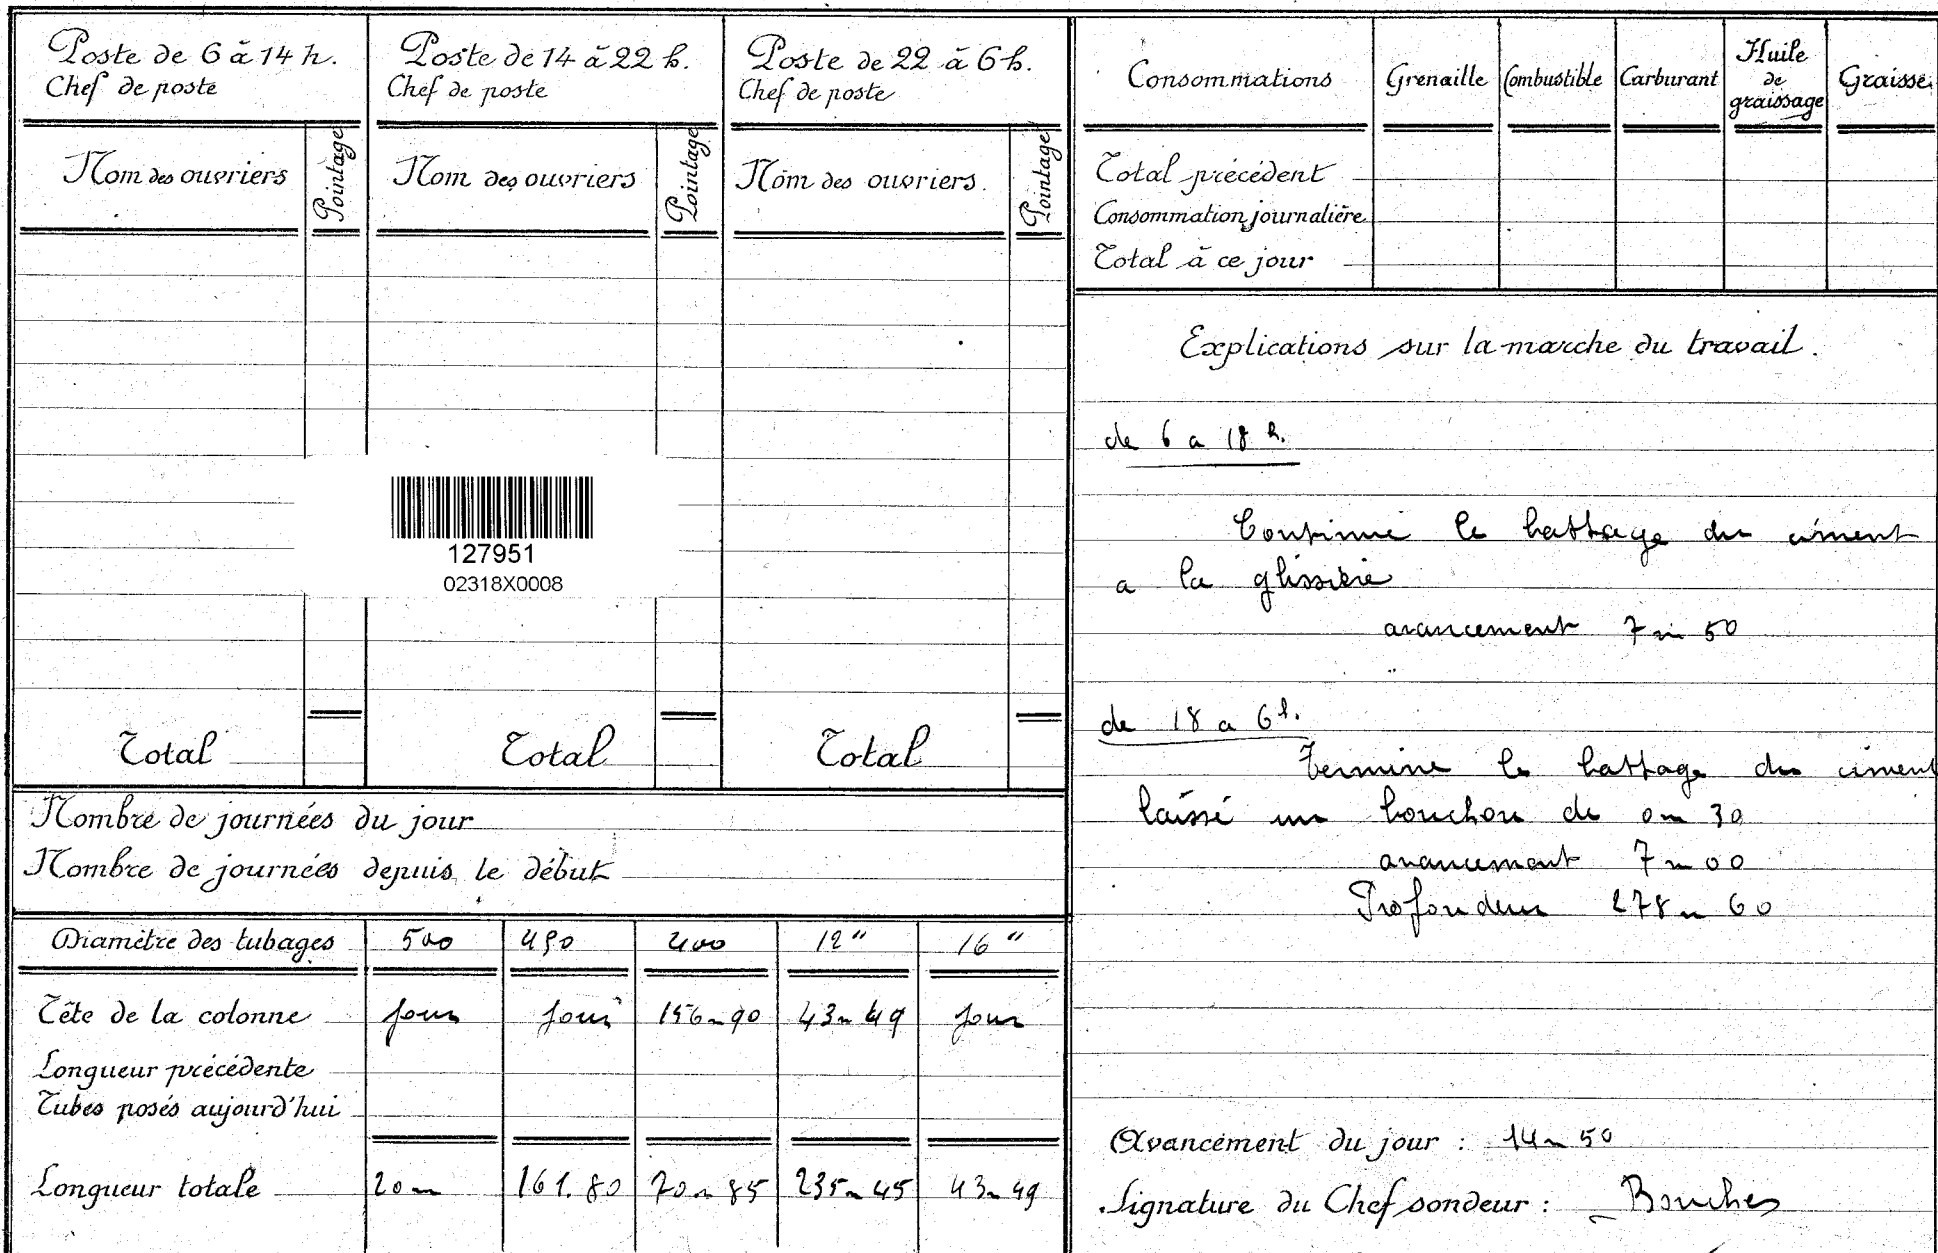 Poste de 6 à 14 h.
Chef de poste
Nom des ouvriers
Pointage
Total
Poste de 14 à 22 h.
Chef de poste
Nom des ouvriers
Pointage
Total
Poste de 22 à 6 h.
Chef de poste
Nom des ouvriers.
Pointage
Total
127951
02318X0008
Nombre de journées du jour
Nombre de journées depuis le début
Diamètre des tubages 500 490 400 12" 16"
Tête de la colonne jour jour 156m90 43m49 jour
Longueur précédente
Tubes posés aujourd'hui
Longueur totale 20m 161.80 70m85 235m45 43m49
Consommations Grenaille Combustible Carburant Huile de graissage Graisse
Total précédent
Consommation journalière
Total à ce jour
Explications sur la marche du travail.
de 6 a 18 h.
Continue le battage du ciment
a la glissière
avancement 7m50
de 18 a 6h.
Termine le battage du ciment
laissé un bouchon de 0m30
avancement 7m00
Profondeur 278m60
Avancement du jour : 14m50
Signature du Chef sondeur :